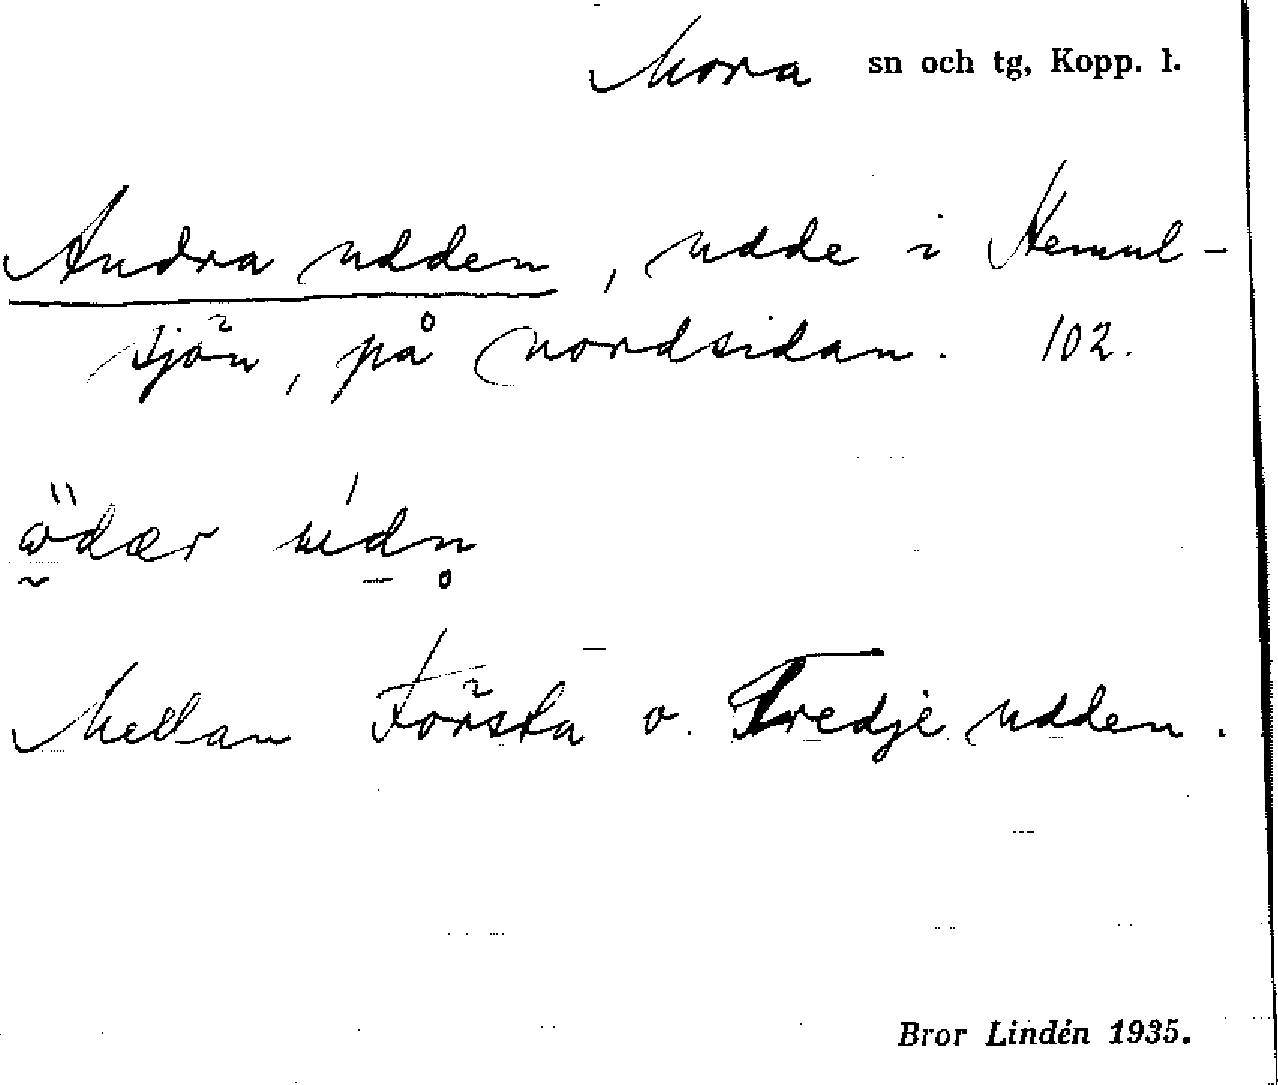 Mora sn och tg, Kopp. l.
Andra udden, udde i Hemul-
sjön, på nordsidan. 102.
Mellan Första o. Tredje udden.
Bror Lindén 1935.